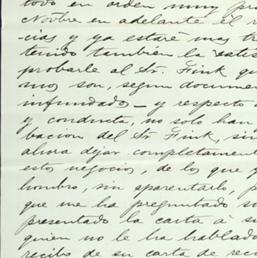 todo en orden muy pro
Novbre en adelante el r
cias y ya estaré mas tr
tenido tambien la satis
probarle al Sr. Fink qu
mos son, segun documen
infundado - y respecto a
y conducta, no solo han
bacion del Sr Fink, sin
alma dejar completament
estos negocios, de los que y
hombro, sin aparentarlo, p
que me ha preguntado su
presentado la carta á su
quien no le ha hablado
recibo de su carta de reco